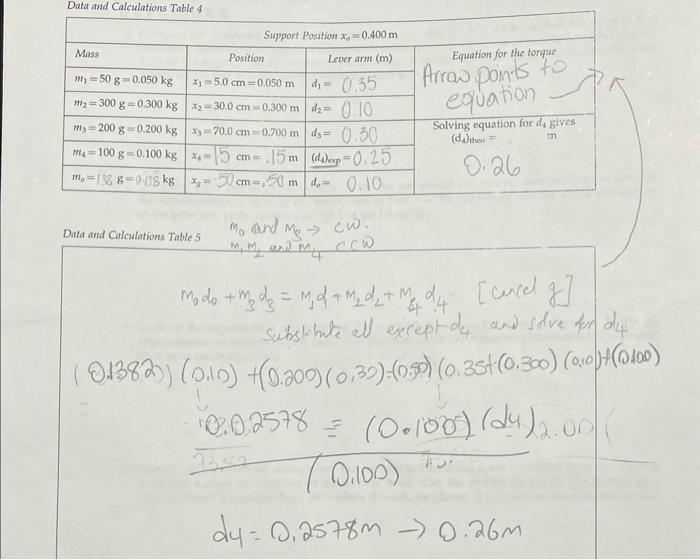 Data and Calculations Table 4
Support Position x₀ = 0.400 m
Mass Position Lever arm (m) Equation for the torque
m₁ = 50 g = 0.050 kg x₁ = 5.0 cm = 0.050 m d₁ = 0.35 Arrow points to
m₂ = 300 g = 0.300 kg x₂ = 30.0 cm = 0.300 m d₂ = 0.10 equation
m₃ = 200 g = 0.200 kg x₃ = 70.0 cm = 0.700 m d₃ = 0.30 Solving equation for d₄ gives
(d₄)theo = m
m₄ = 100 g = 0.100 kg x₄ = 15 cm = .15 m (d₄)exp = 0.25 0.26
m₀ = 138 g = 0.138 kg xg = 50 cm = .50 m d₀ = 0.10
Data and Calculations Table 5
m₀ and m₃ → cw.
m₁ m₂ and m₄ ccw
m₀d₀ + m₃d₃ = m₁d₁ + m₂d₂ + m₄d₄ [cancel g]
substitute all except d₄ and solve for d₄
(0.1382) (0.10) + (0.200) (0.30) = (0.50) (0.35 + (0.300) (0.10) + (0.100)
0.02578 = (0.100) (d4)
(0.100)
d4 = 0.2578m → 0.26m